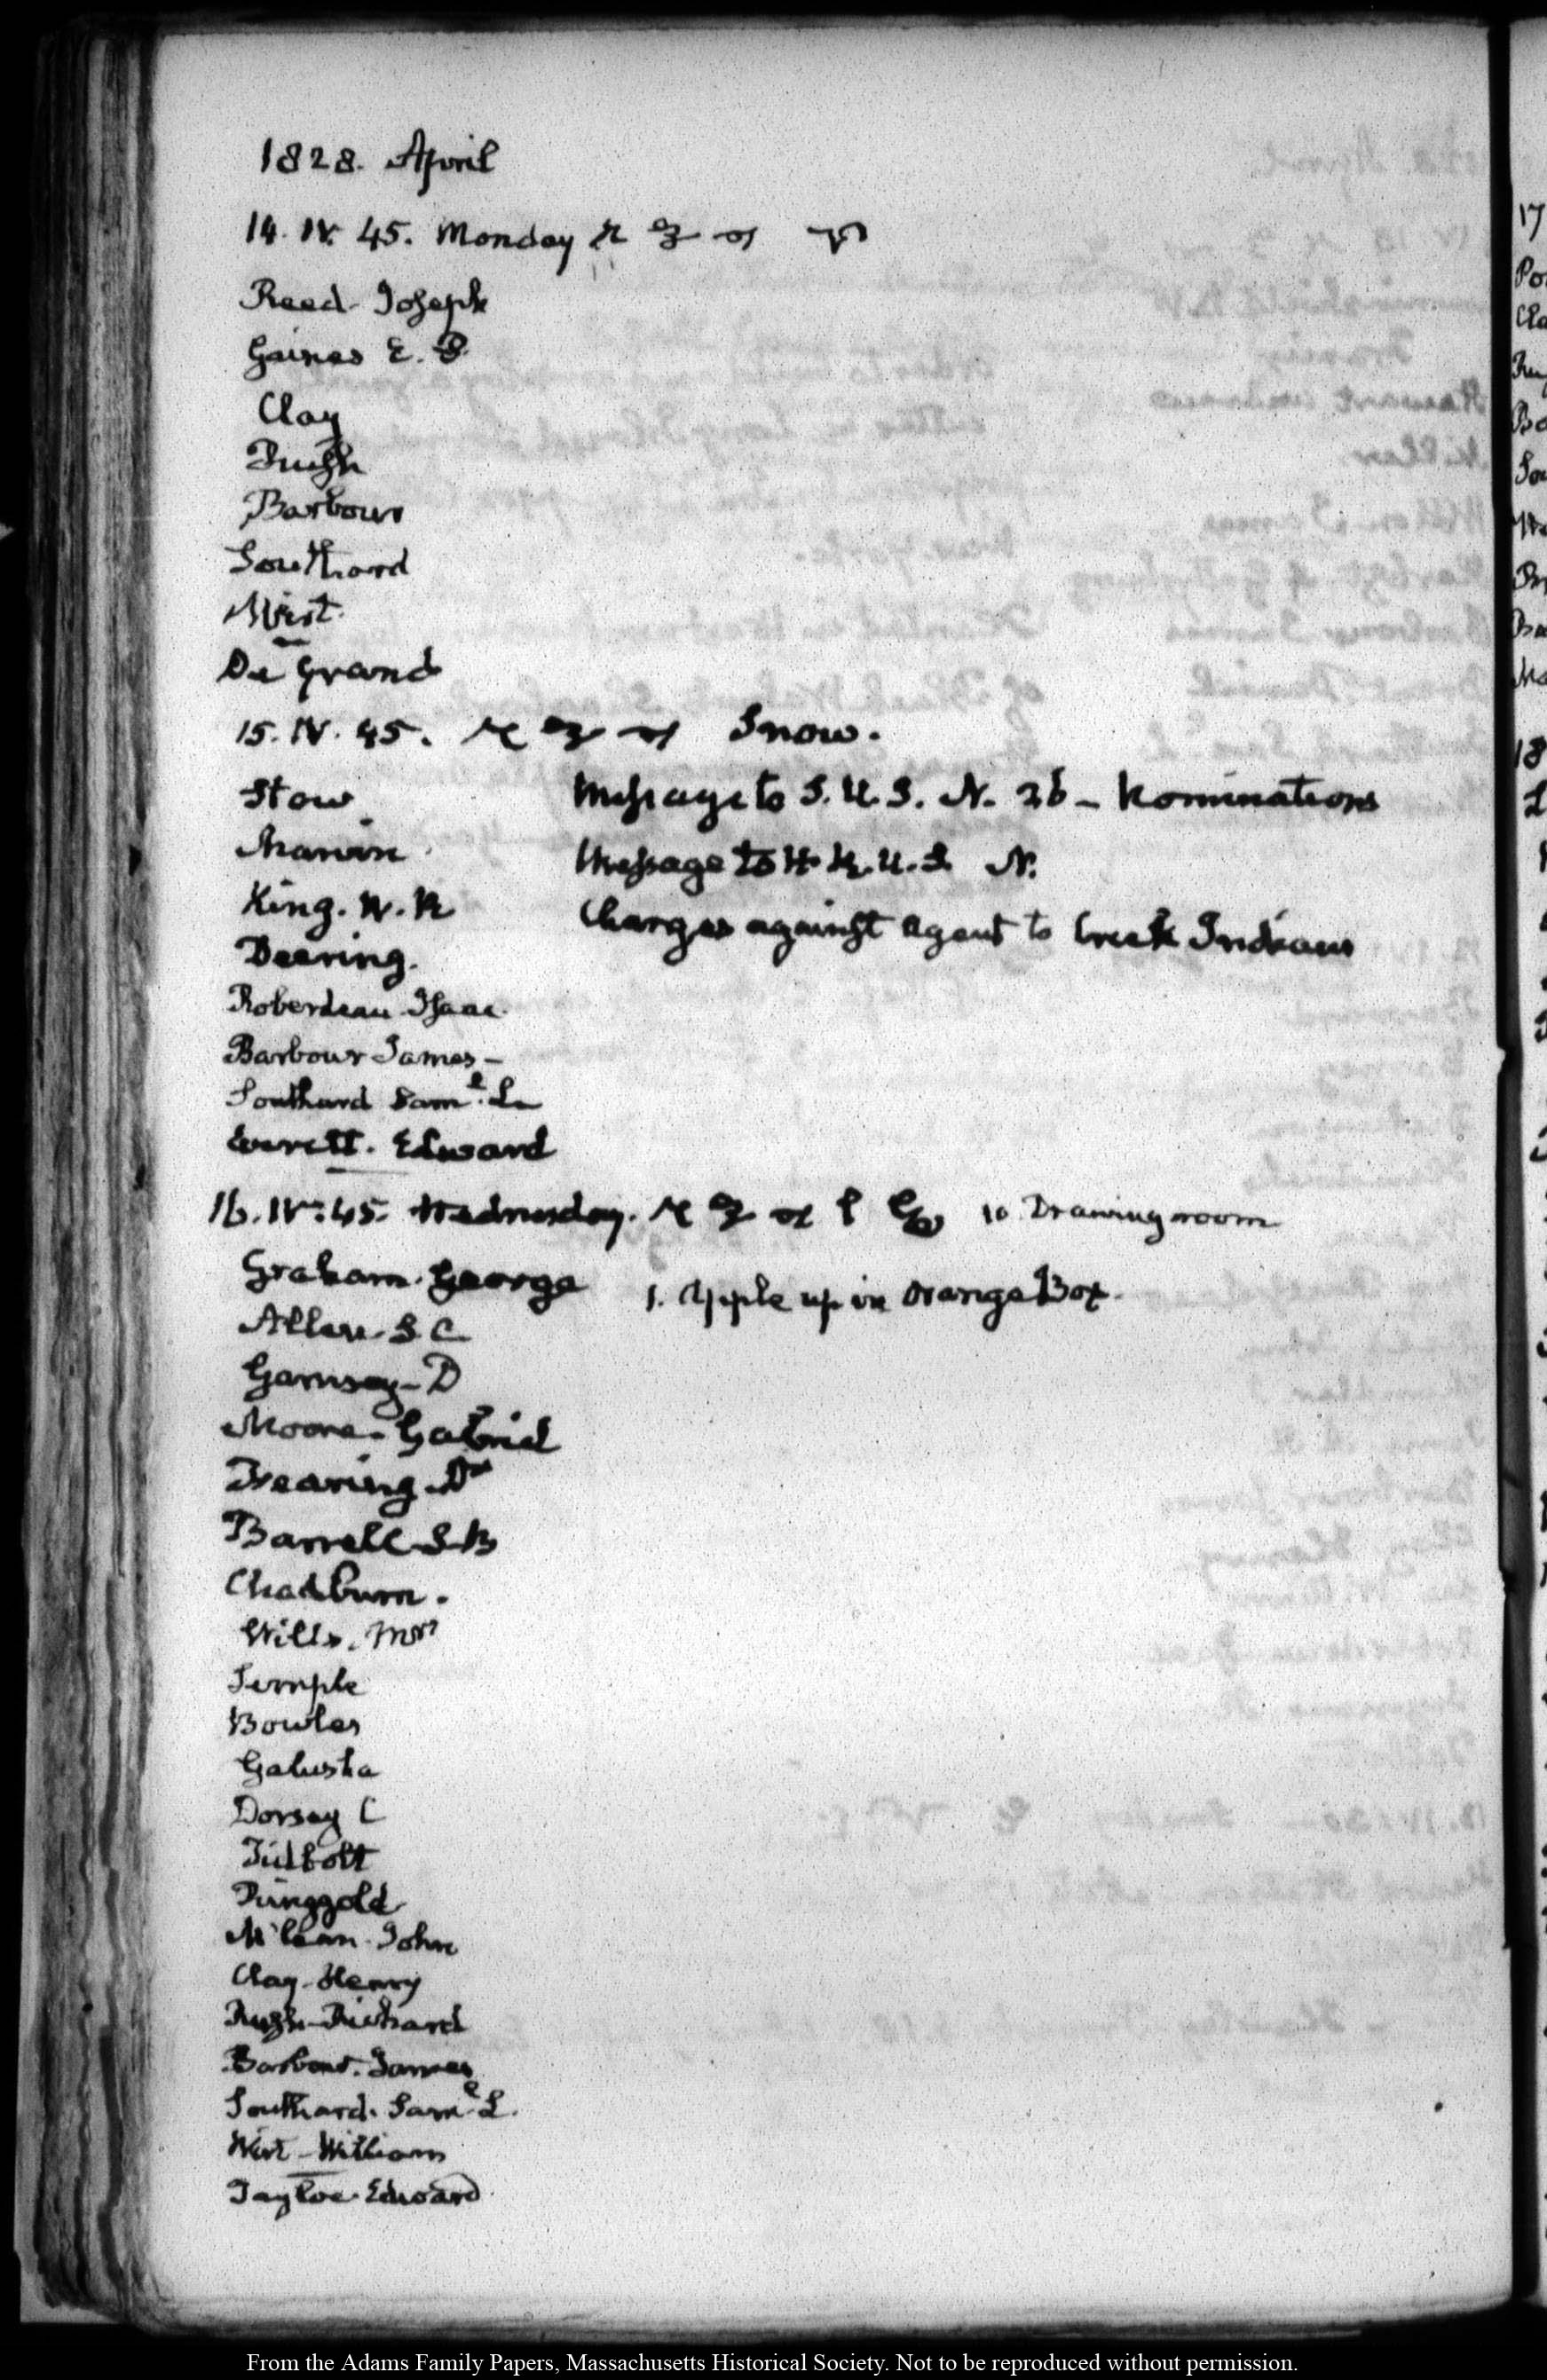 1828. April
14. IV. 45. Monday
Reed Joseph
Gaines E. P.
Clay
Rush
Barbour
Southard
Wirt.
De Grand
15. IV. 45. Snow.
Stow Message to S. U. S. N. 26 - Nominations
Marvin Message to H. R. U. S. N.
King. W. R Charges against Agent to Creek Indians
Deering.
Roberdeau Isaac
Barbour James -
Southard Saml. L.
Everett. Edward
16. IV. 45. Wednesday. 10 Drawing room
Graham. George 1. Apple up in Orange Box.
Allen. S. C
Garnsey - D
Moore. Gabriel
Fearing. Dr
Barrell S B
Chadburn.
Wills. Mrs
Temple
Bowles
Galusha
Dorsey C
Tidbolt
Ringgold
McLean John
Clay Henry
Rush Richard
Barbour. James
Southard. Saml L.
Wirt - William
Tayloe Edward
From the Adams Family Papers, Massachusetts Historical Society. Not to be reproduced without permission.